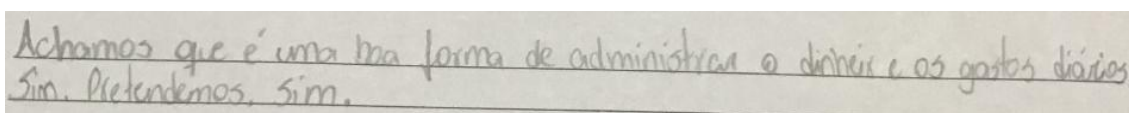 Achamos que é uma boa forma de administrar o dinheiro e os gastos diários
Sim. Pretendemos, sim.